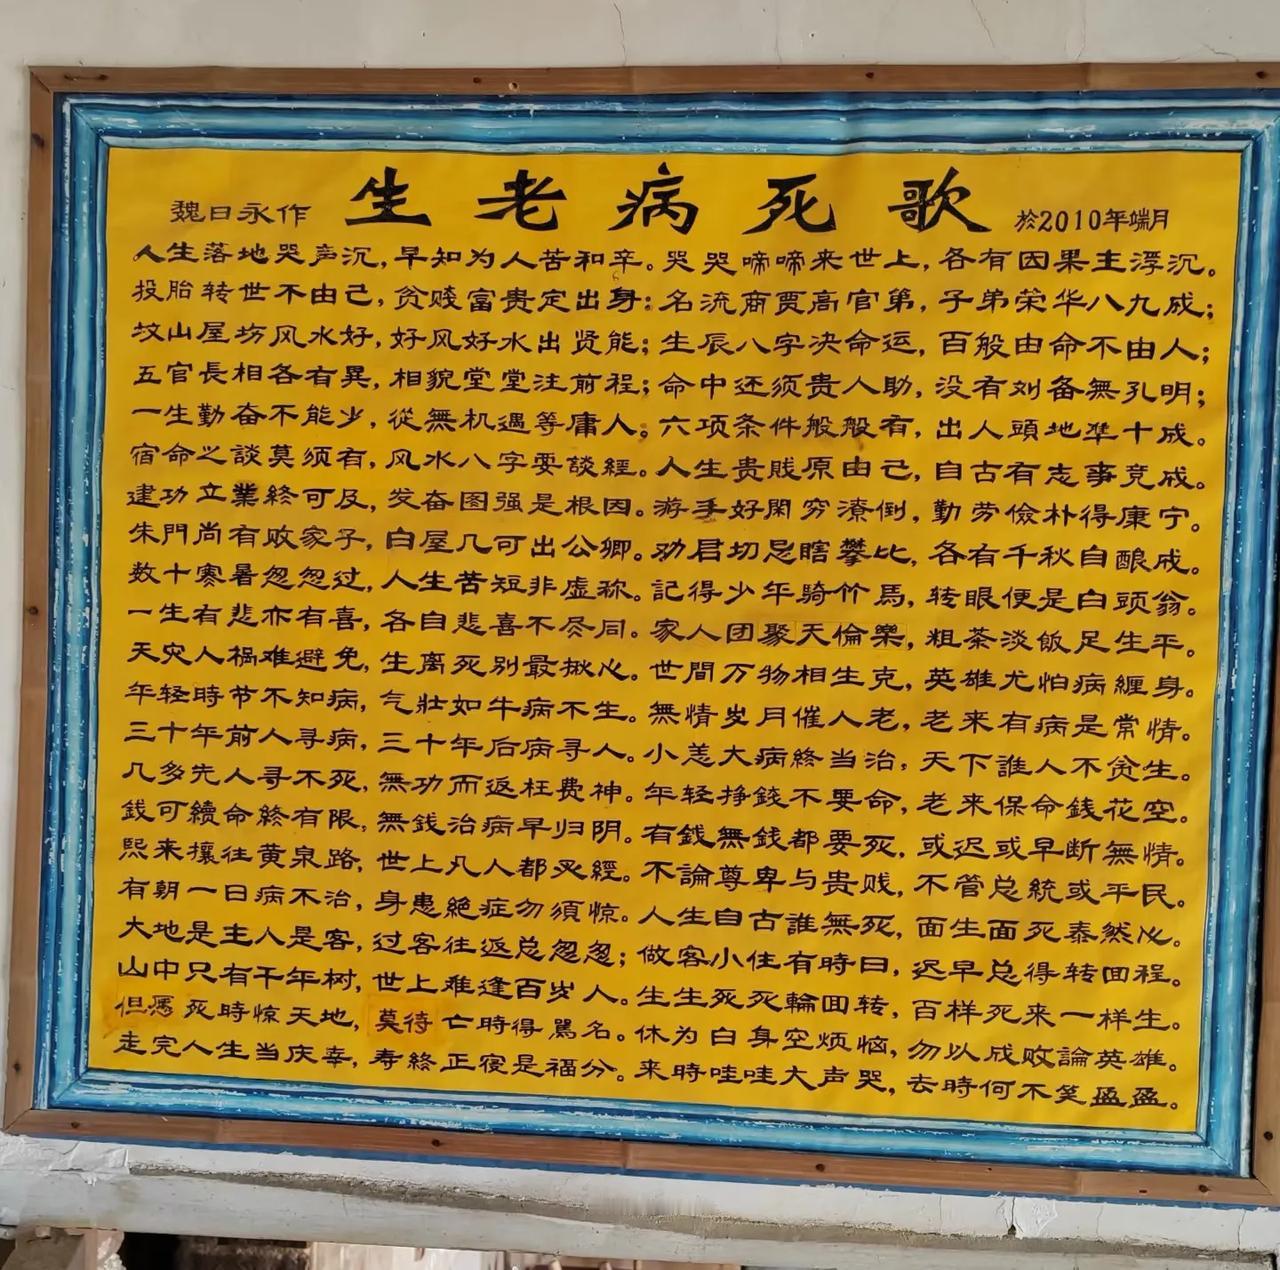 魏日永作 生老病死歌 於2010年端月
人生落地哭声沉,早知为人苦和辛。哭哭啼啼来世上,各有因果主浮沉。
投胎转世不由己,贫贱富贵定出身;名流商贾高官第,子弟荣华八九成;
坟山屋场风水好,好风好水出贤能;生辰八字决命运,百般由命不由人;
五官長相各有異,相貌堂堂注前程;命中还须贵人助,没有刘备無孔明;
一生勤奋不能少,從無机遇等庸人;六项条件般般有,出人頭地準十成。
宿命之談莫须有,风水八字耍談經。人生贵贱原由己,自古有志事竞成。
建功立業終可及,发奋图强是根因。游手好閑穷潦倒,勤劳儉朴得康宁。
朱門尚有败家子,白屋几可出公卿。劝君切忌瞎攀比,各有千秋自酿成。
数十寒暑忽忽过,人生苦短非虚称。記得少年骑竹馬,转眼便是白頭翁。
一生有悲亦有喜,各自悲喜不尽同。家人团聚天倫樂,粗茶淡飯足生平。
天灾人祸难避免,生离死别最揪心。世間万物相生克,英雄尤怕病纒身。
年轻時节不知病,气壯如牛病不生。無情岁月催人老,老来有病是常情。
三十年前人寻病,三十年后病寻人。小恙大病終当治,天下誰人不贪生。
几多先人寻不死,無功而返枉费神。年轻挣錢不要命,老来保命錢花空。
錢可續命終有限,無錢治病早归阴。有錢無錢都要死,或迟或早断無情。
熙来攘往黄泉路,世上凡人都必經。不論尊卑与贵贱,不管总統或平民。
有朝一日病不治,身患絶症勿須惊。人生自古誰無死,面生面死泰然心。
大地是主人是客,过客往返总忽忽;做客小住有時日,迟早总得转回程。
山中只有千年树,世上难逢百岁人。生生死死輪回转,百样死来一样生。
但愿死時惊天地,莫待亡時得駡名。休为白身空烦恼,勿以成败論英雄。
走完人生当庆幸,寿終正寝是福分。来時哇哇大声哭,去時何不笑盈盈。